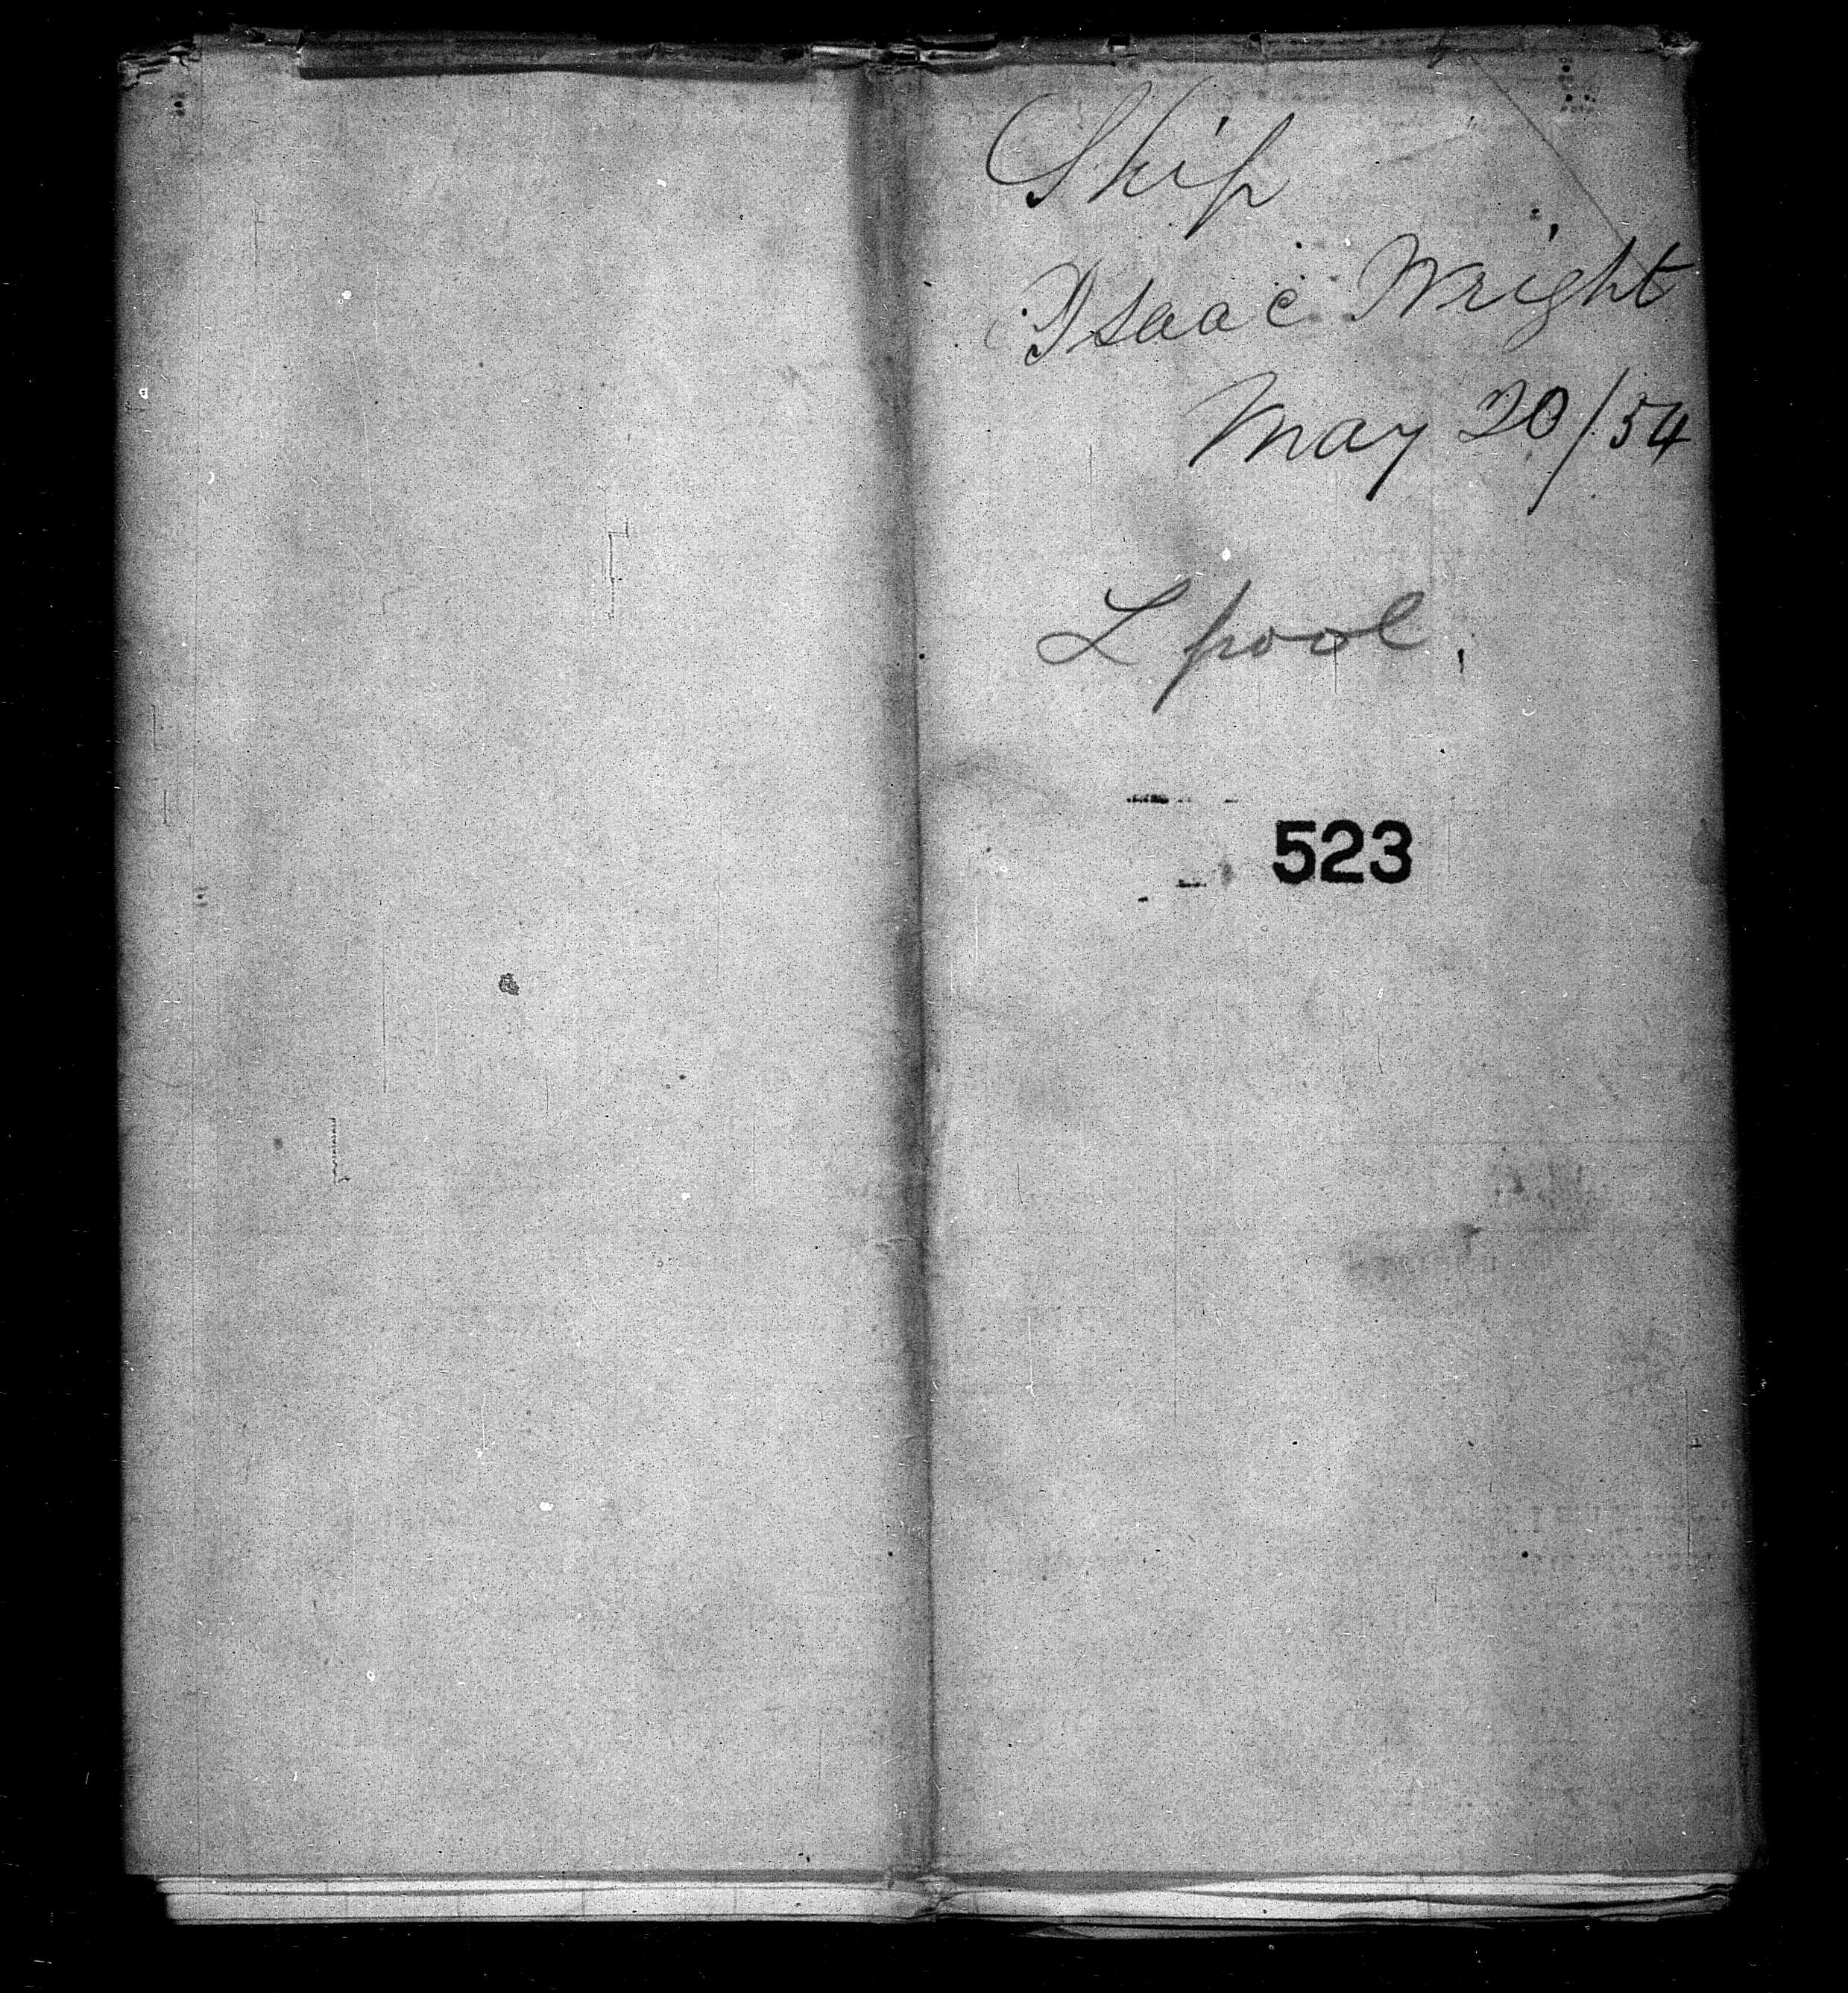 Ship
Isaac Wright
May 20/54
L pool.
523